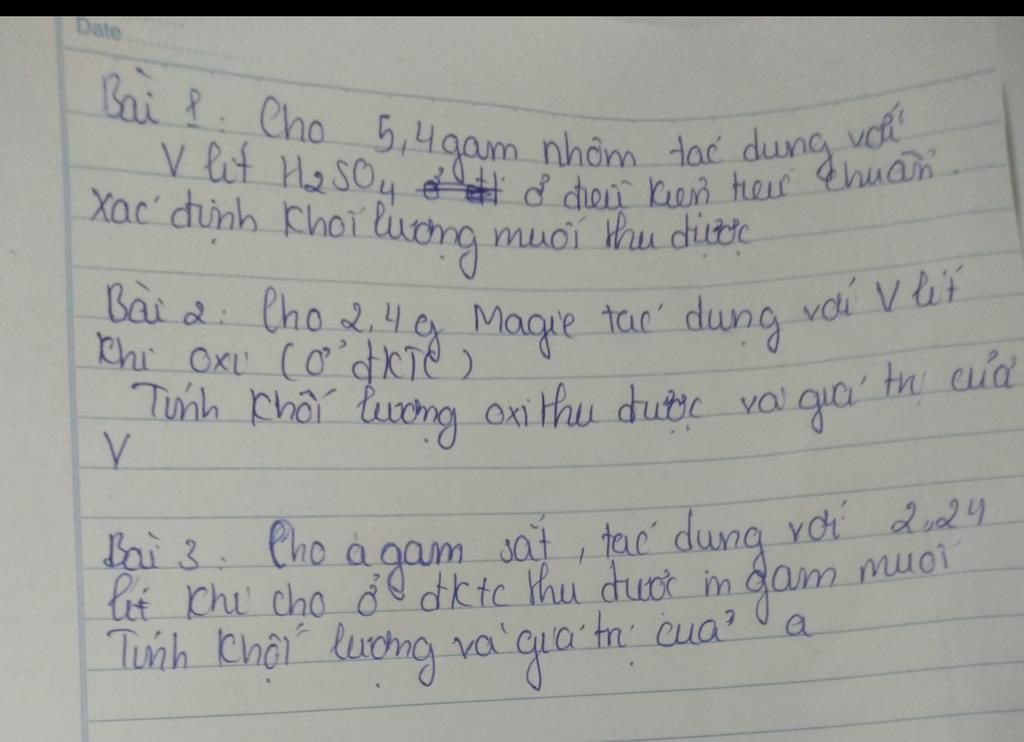 Date
Bài 1: Cho 5,4gam nhôm tác dụng với
V lít H2SO4 ở điều kiện tiêu chuẩn.
Xác định khối lượng muối thu được
Bài 2: Cho 2,4g Magie tác dụng với V lít
khí oxi (ở đKTC)
Tính khối lượng oxi thu được và giá trị của
V
Bài 3: Cho a gam sắt, tác dụng với 2,24
lít khí cho ở đktc thu được m gam muối
Tính khối lượng và giá trị của a